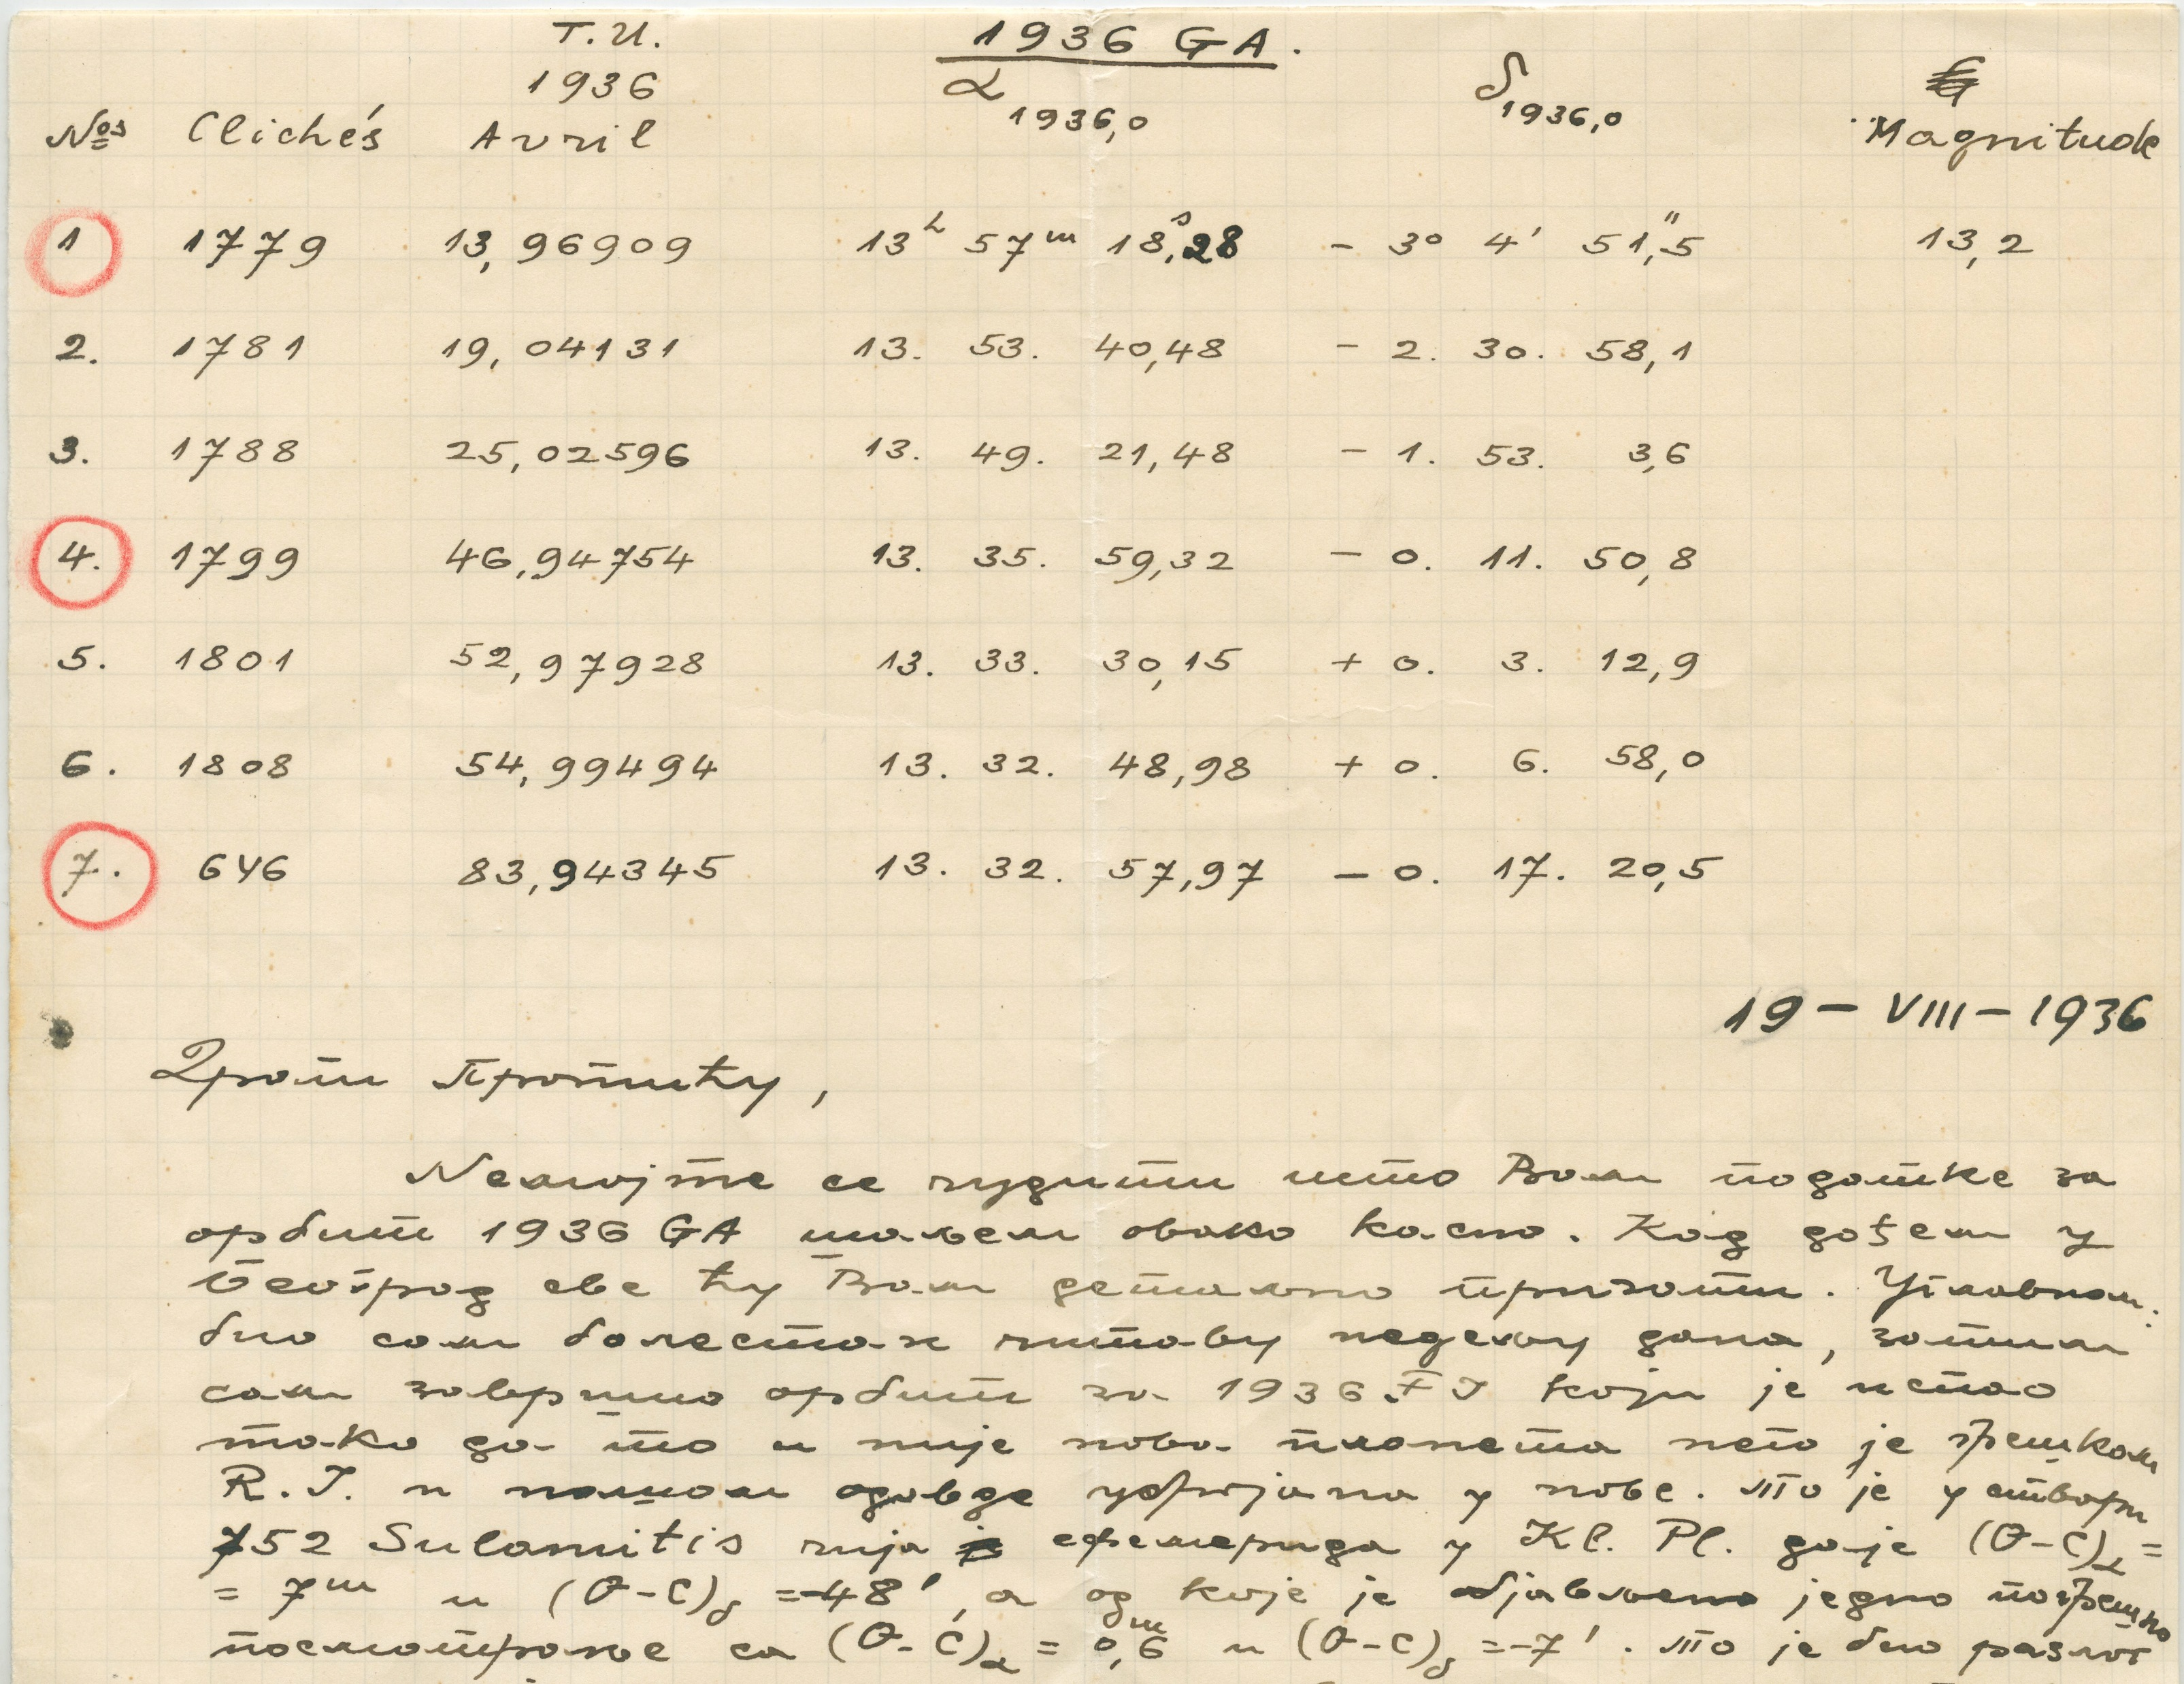 T.U.
1936 GA.
1936
α 1936,0
δ 1936,0
Nos Clichés Avril Magnitude
1 1779 13,96909 13h 57m 18,s28 - 3° 4' 51,"5 13,2
2. 1781 19,04131 13. 53. 40,48 - 2. 30. 58,1
3. 1788 25,02596 13. 49. 21,48 - 1. 53. 3,6
4. 1799 46,94754 13. 35. 59,32 - 0. 11. 50,8
5. 1801 52,97928 13. 33. 30,15 + 0. 3. 12,9
6. 1808 54,99494 13. 32. 48,98 + 0. 6. 58,0
7. 646 83,94345 13. 32. 57,97 - 0. 17. 20,5
19 - VIII - 1936
Драги Протићу,
Немојте се чудити што Вам податке за
орбит 1936 GA шаљем овако касно. Кад дођем у
Београд све ћу Вам детаљно причати. Углавном:
био сам болестан читаву недељу дана, затим
сам завршио орбит за 1936 FJ који је испао
тако да то и није нова планета него је грешком
R. I. и нашом одавде убројана у нове. То је у ствари
752 Sulamitis чија ефемерида у Kl. Pl. даје (O-C)α =
= 7m и (O-C)δ = -48', а од које је објављено једно погрешно
посматрање са (O-C)α = 0,m6 и (O-C)δ = -7'. То је био разлог